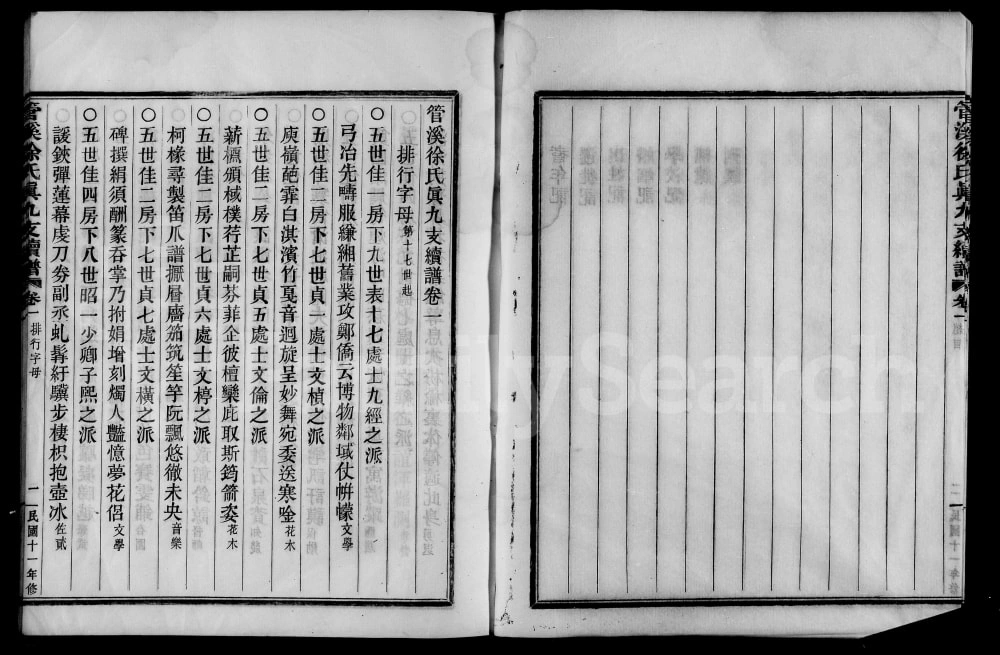 管溪徐氏眞九支續譜
卷一
總目
二
民國十一年修
管溪徐氏眞九支續譜卷一
排行字母第十七世起
○五世佳一房下九世表十七處士九經之派
弓冶先疇服縑緗舊業攻鄭僑云博物鄰域仗帡幪文學
○五世佳二房下七世貞一處士文楨之派
庾嶺葩霏白淇濱竹戛音迴旋呈妙舞宛委送寒唫花木
○五世佳二房下七世貞五處士文倫之派
薪槱頒棫樸荇芷嗣芬菲企彼檀欒庇取斯筠箭姿花木
○五世佳二房下七世貞六處士文楟之派
柯椽尋製笛爪譜擫層層笳筑笙竽阮飄悠徹未央音樂
○五世佳二房下七世貞七處士文橫之派
碑撰絹須酬篆吞掌乃拊娟增刻燭人豔憶夢花侶文學
○五世佳四房下八世昭一少卿子熙之派
諼鋏彈蓮幕虔刀劵副丞虬髯紆驥步棲枳抱壺冰佐貳
管溪徐氏眞九支續譜
卷一
排行字母
一
民國十一年修
FamilySearch